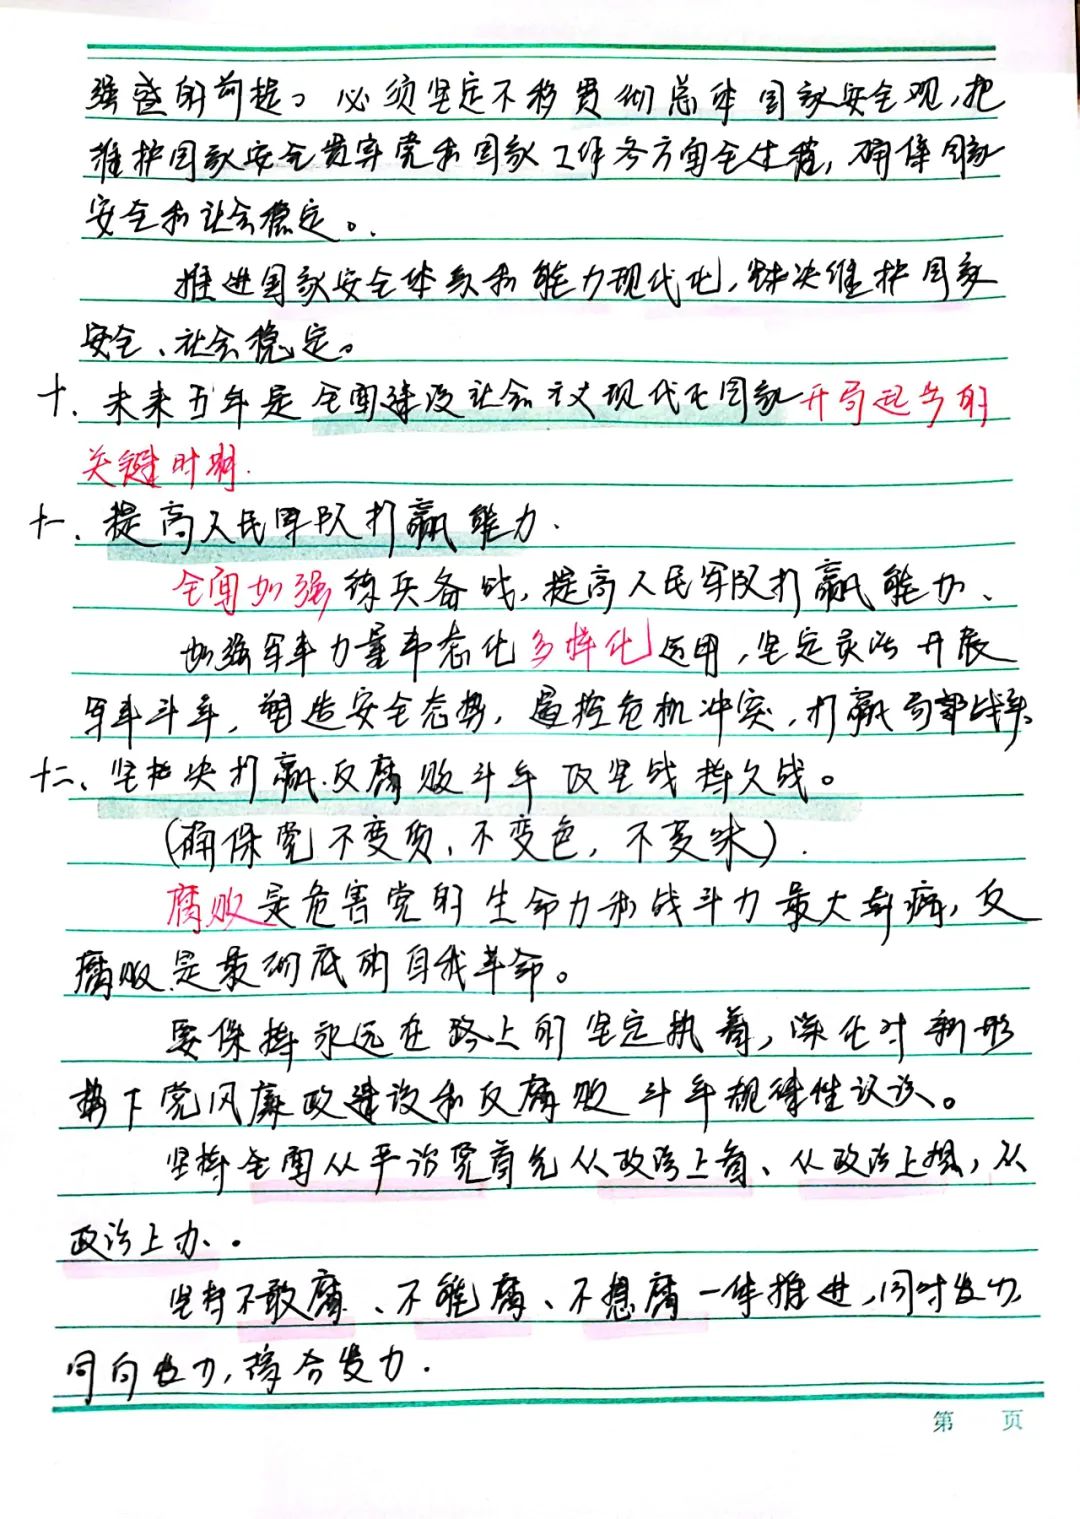 强盛的前提。必须坚定不移贯彻总体国家安全观,把
维护国家安全贯穿党和国家工作各方面全过程,确保国家
安全和社会稳定。
推进国家安全体系和能力现代化,坚决维护国家
安全、社会稳定。
十、未来五年是全面建设社会主义现代化国家开局起步的
关键时期.
十一、提高人民军队打赢能力.
全面加强练兵备战,提高人民军队打赢能力、
加强军事力量常态化多样化运用,坚定灵活开展
军事斗争,塑造安全态势,遏控危机冲突,打赢局部战争
十二、坚决打赢反腐败斗争攻坚战持久战。
(确保党不变质、不变色,不变味).
腐败是危害党的生命力和战斗力最大毒瘤,反
腐败是最彻底的自我革命。
要保持永远在路上的坚定执着,深化对新形
势下党风廉政建设和反腐败斗争规律性认识。
坚持全面从严治党首先从政治上看、从政治上想,从
政治上办、.
坚持不敢腐、不能腐、不想腐一体推进,同时发力,
同向发力,综合发力.
第 页